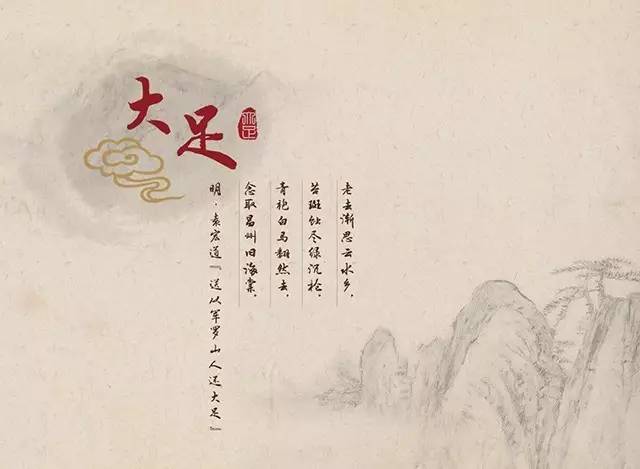 大足
大足
老去渐思云水乡，
苔斑蚀尽绿沉枪。
青袍白马翩然去，
念取昌州旧海棠。
明·袁宏道『送从军罗山人还大足』